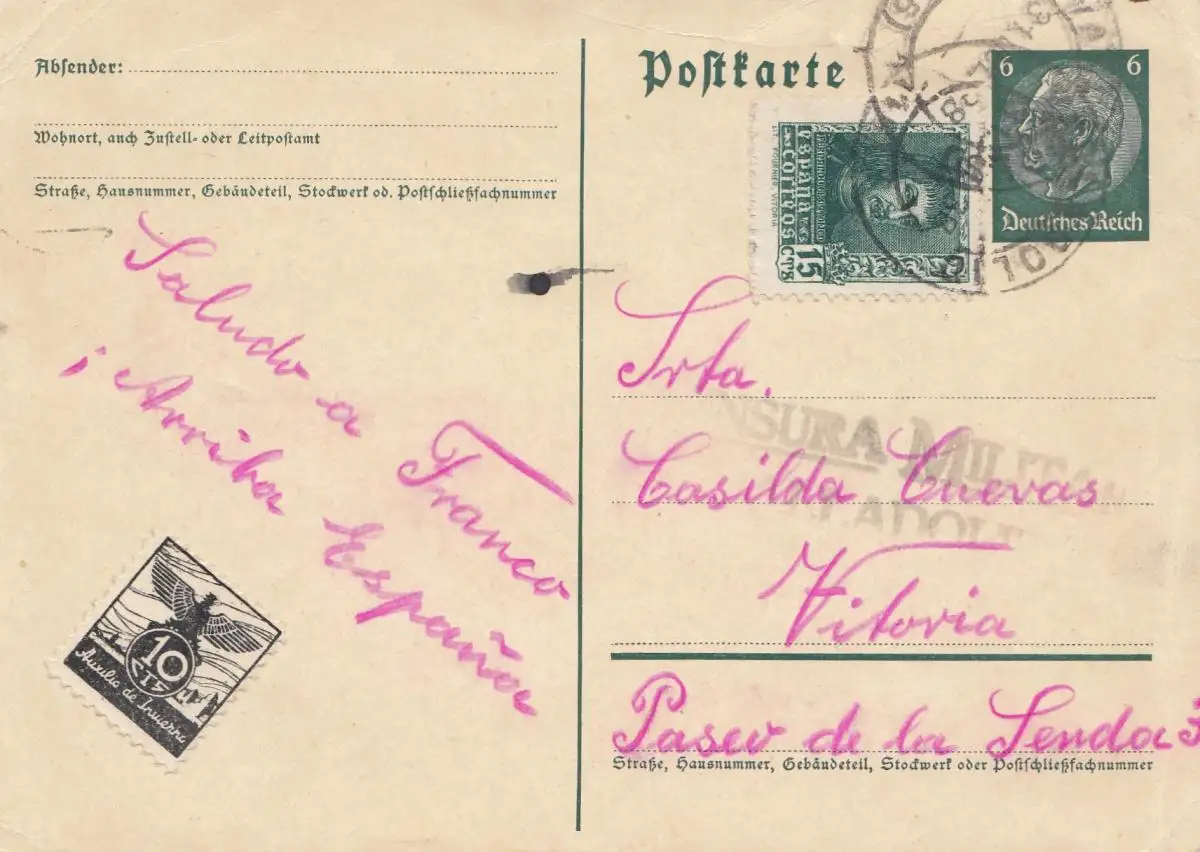 Absender:
Wohnort, auch Zustell- oder Leitpostamt
Straße, Hausnummer, Gebäudeteil, Stockwerk od. Postschließfachnummer
Saludo a Franco
¡Arriba España
10
CTS
Auxilio de Invierno
Postkarte
6 6
Deutsches Reich
ESPAÑA
CORREOS
15 CTS
LIT. FOURNIER VITORIA
Srta.
Casilda Cuevas
Vitoria
Paseo de la Senda 3
Straße, Hausnummer, Gebäudeteil, Stockwerk oder Postschließfachnummer